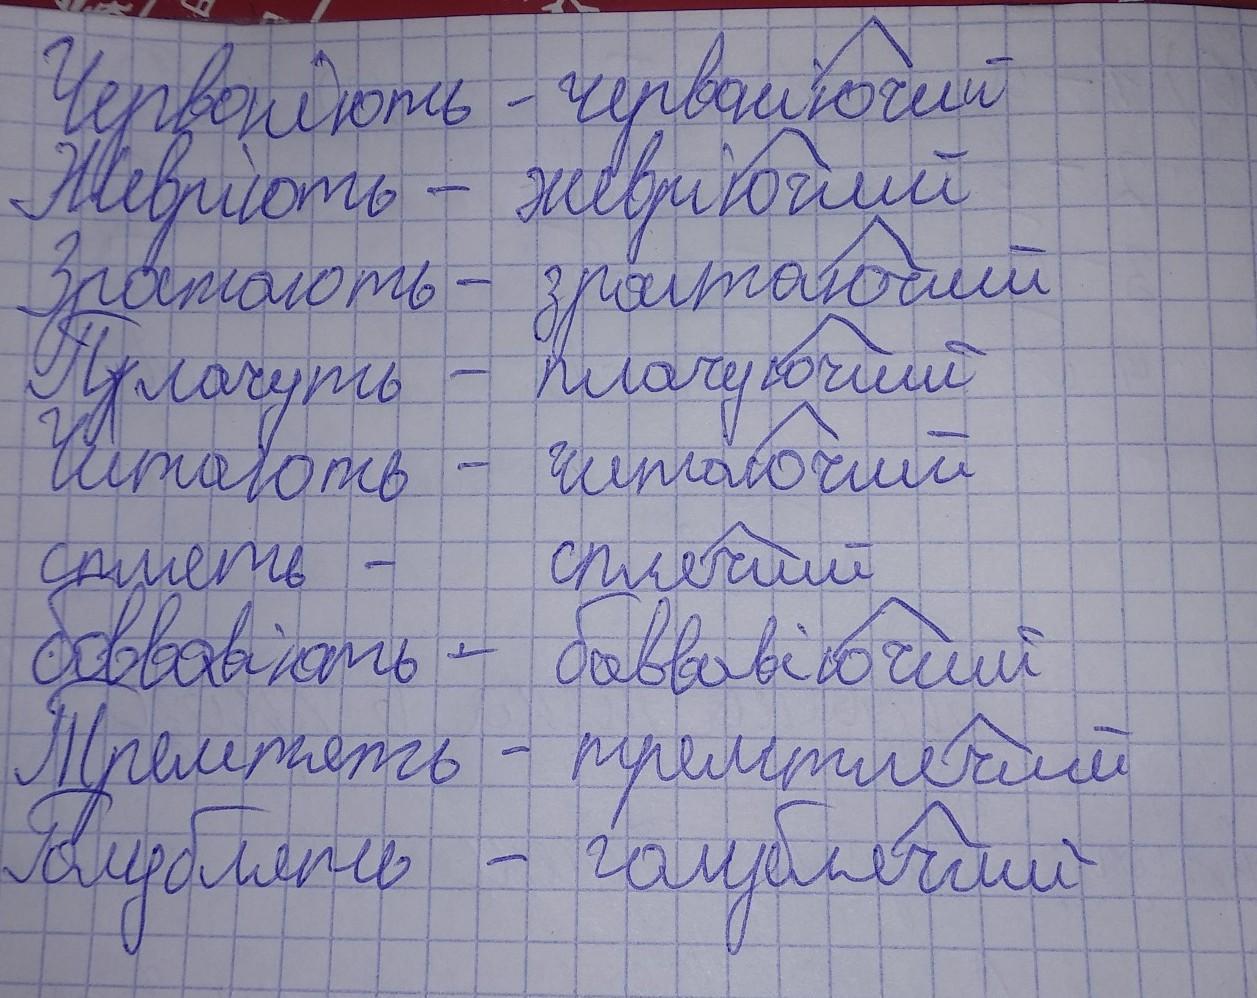 Червоніють - червоніючий
Жевріють - жевріючий
Зростають - зростаючий
Плачуть - плачуючий
Читають - читаючий
сплять - сплячий
бовваніють - бовваніючий
Тремтять - тремтлячий
Голублять - голублячий